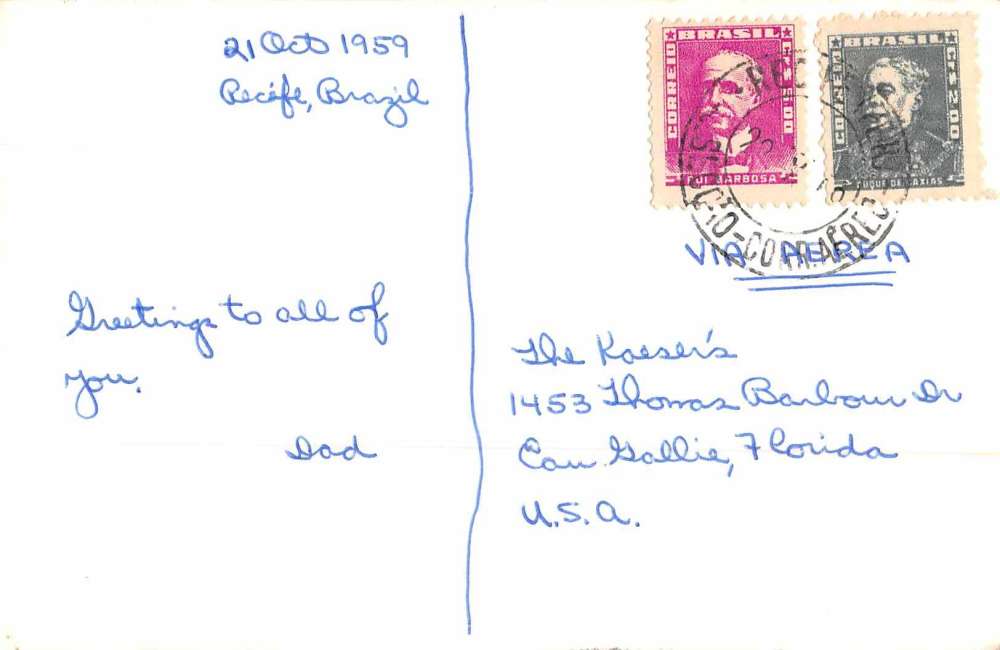 21 Oct 1959
Recife, Brazil
Greetings to all of
you.
Dad
BRASIL
CORREIO
RUI BARBOSA
BRASIL
CORREIO
DUQUE DE CAXIAS
VIA AEREA
The Kaeser's
1453 Thomas Barbour Dr
Eau Gallie, Florida
U.S.A.